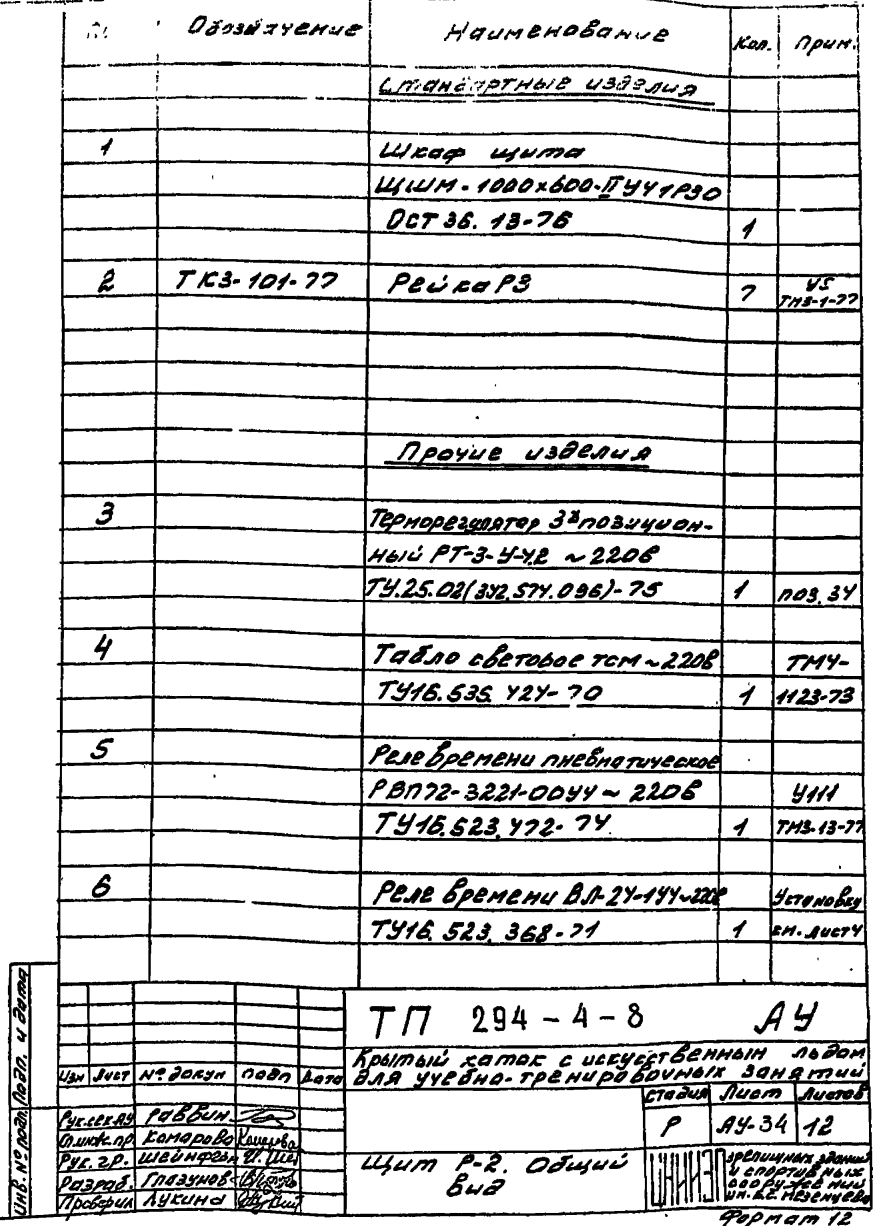 Обозначение Наименование Кол. Прим.
Стандартные изделия
1 Шкаф щита
ЩШМ-1000х600-II УЧ1Р30
ОСТ 36.13-76 1
2 ТКЗ-101-77 Рейка РЗ 7 У5
ТМЗ-1-77
Прочие изделия
3 Терморегулятор 3х позицион-
ный РТ-3-У-У2 ~220в
ТУ.25.02(342.574.096)-75 1 поз. 34
4 Табло световое ТСМ ~220в ТМ4-
ТУ16.535.424-70 1 1123-73
5 Реле времени пневматическое
РВП72-3221-00У4 ~ 220в У111
ТУ16.523.472-74 1 ТМ3-13-77
6 Реле времени ВЛ-24-1У4~220в Установку
ТУ16.523.368-71 1 см. лист4
ТП 294-4-8 АУ
Крытый каток с искусственным льдом
для учебно-тренировочных занятий
Изм Лист № докум Подп Дата
Стадия Лист Листов
Р АУ-34 12
Рук.сек АУ Раввин
Гл.инж.пр. Комарова
Рук. гр. Шейнфельд
Разраб. Глазунов
Проверил Лукина
Щит Р-2. Общий
вид
зрелищных зданий
и спортивных
сооружений
им. Б.С. Мезенцева
Формат 12
Инв. № подл. Подп. и дата